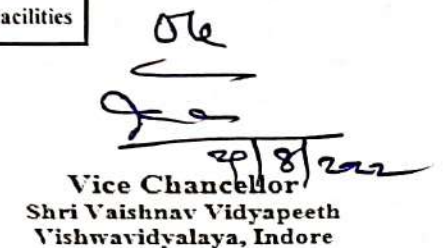 acilities
Ok
8/2022
Vice Chancellor
Shri Vaishnav Vidyapeeth
Vishwavidyalaya, Indore